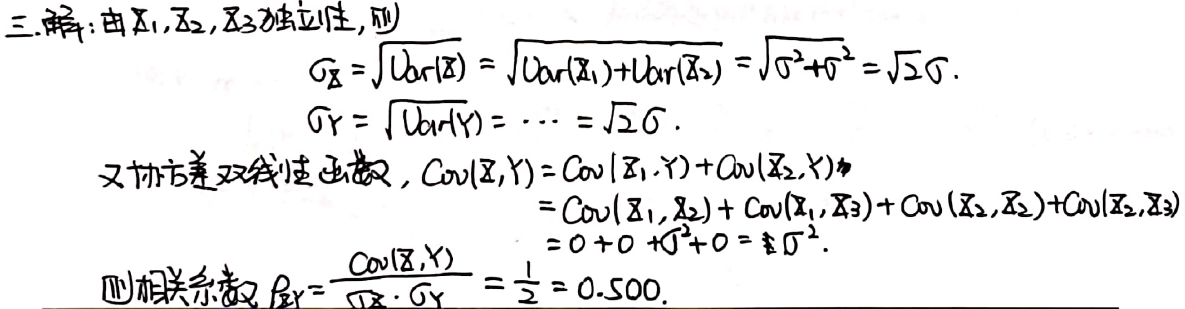 三.解:由X₁,X₂,X₃独立性,则
σ_X = √Var(X) = √Var(X₁)+Var(X₂) = √σ²+σ² = √2σ.
σ_Y = √Var(Y) = ⋯ = √2σ.
又协方差双线性函数, Cov(X,Y) = Cov(X₁,Y)+Cov(X₂,Y)
= Cov(X₁,X₂) + Cov(X₁,X₃) + Cov(X₂,X₂)+Cov(X₂,X₃)
= 0+0+σ²+0 = σ².
则相关系数 ρ_XY = Cov(X,Y)/σ_X·σ_Y = 1/2 = 0.500.